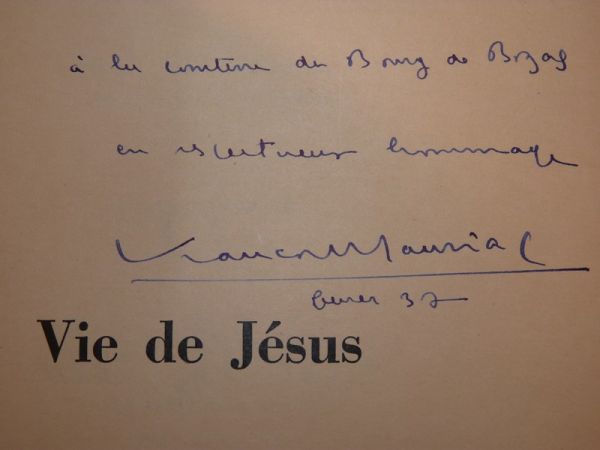 à la comtesse du Bourg de Bozas
en respectueux hommage
François Mauriac
37
Vie de Jésus